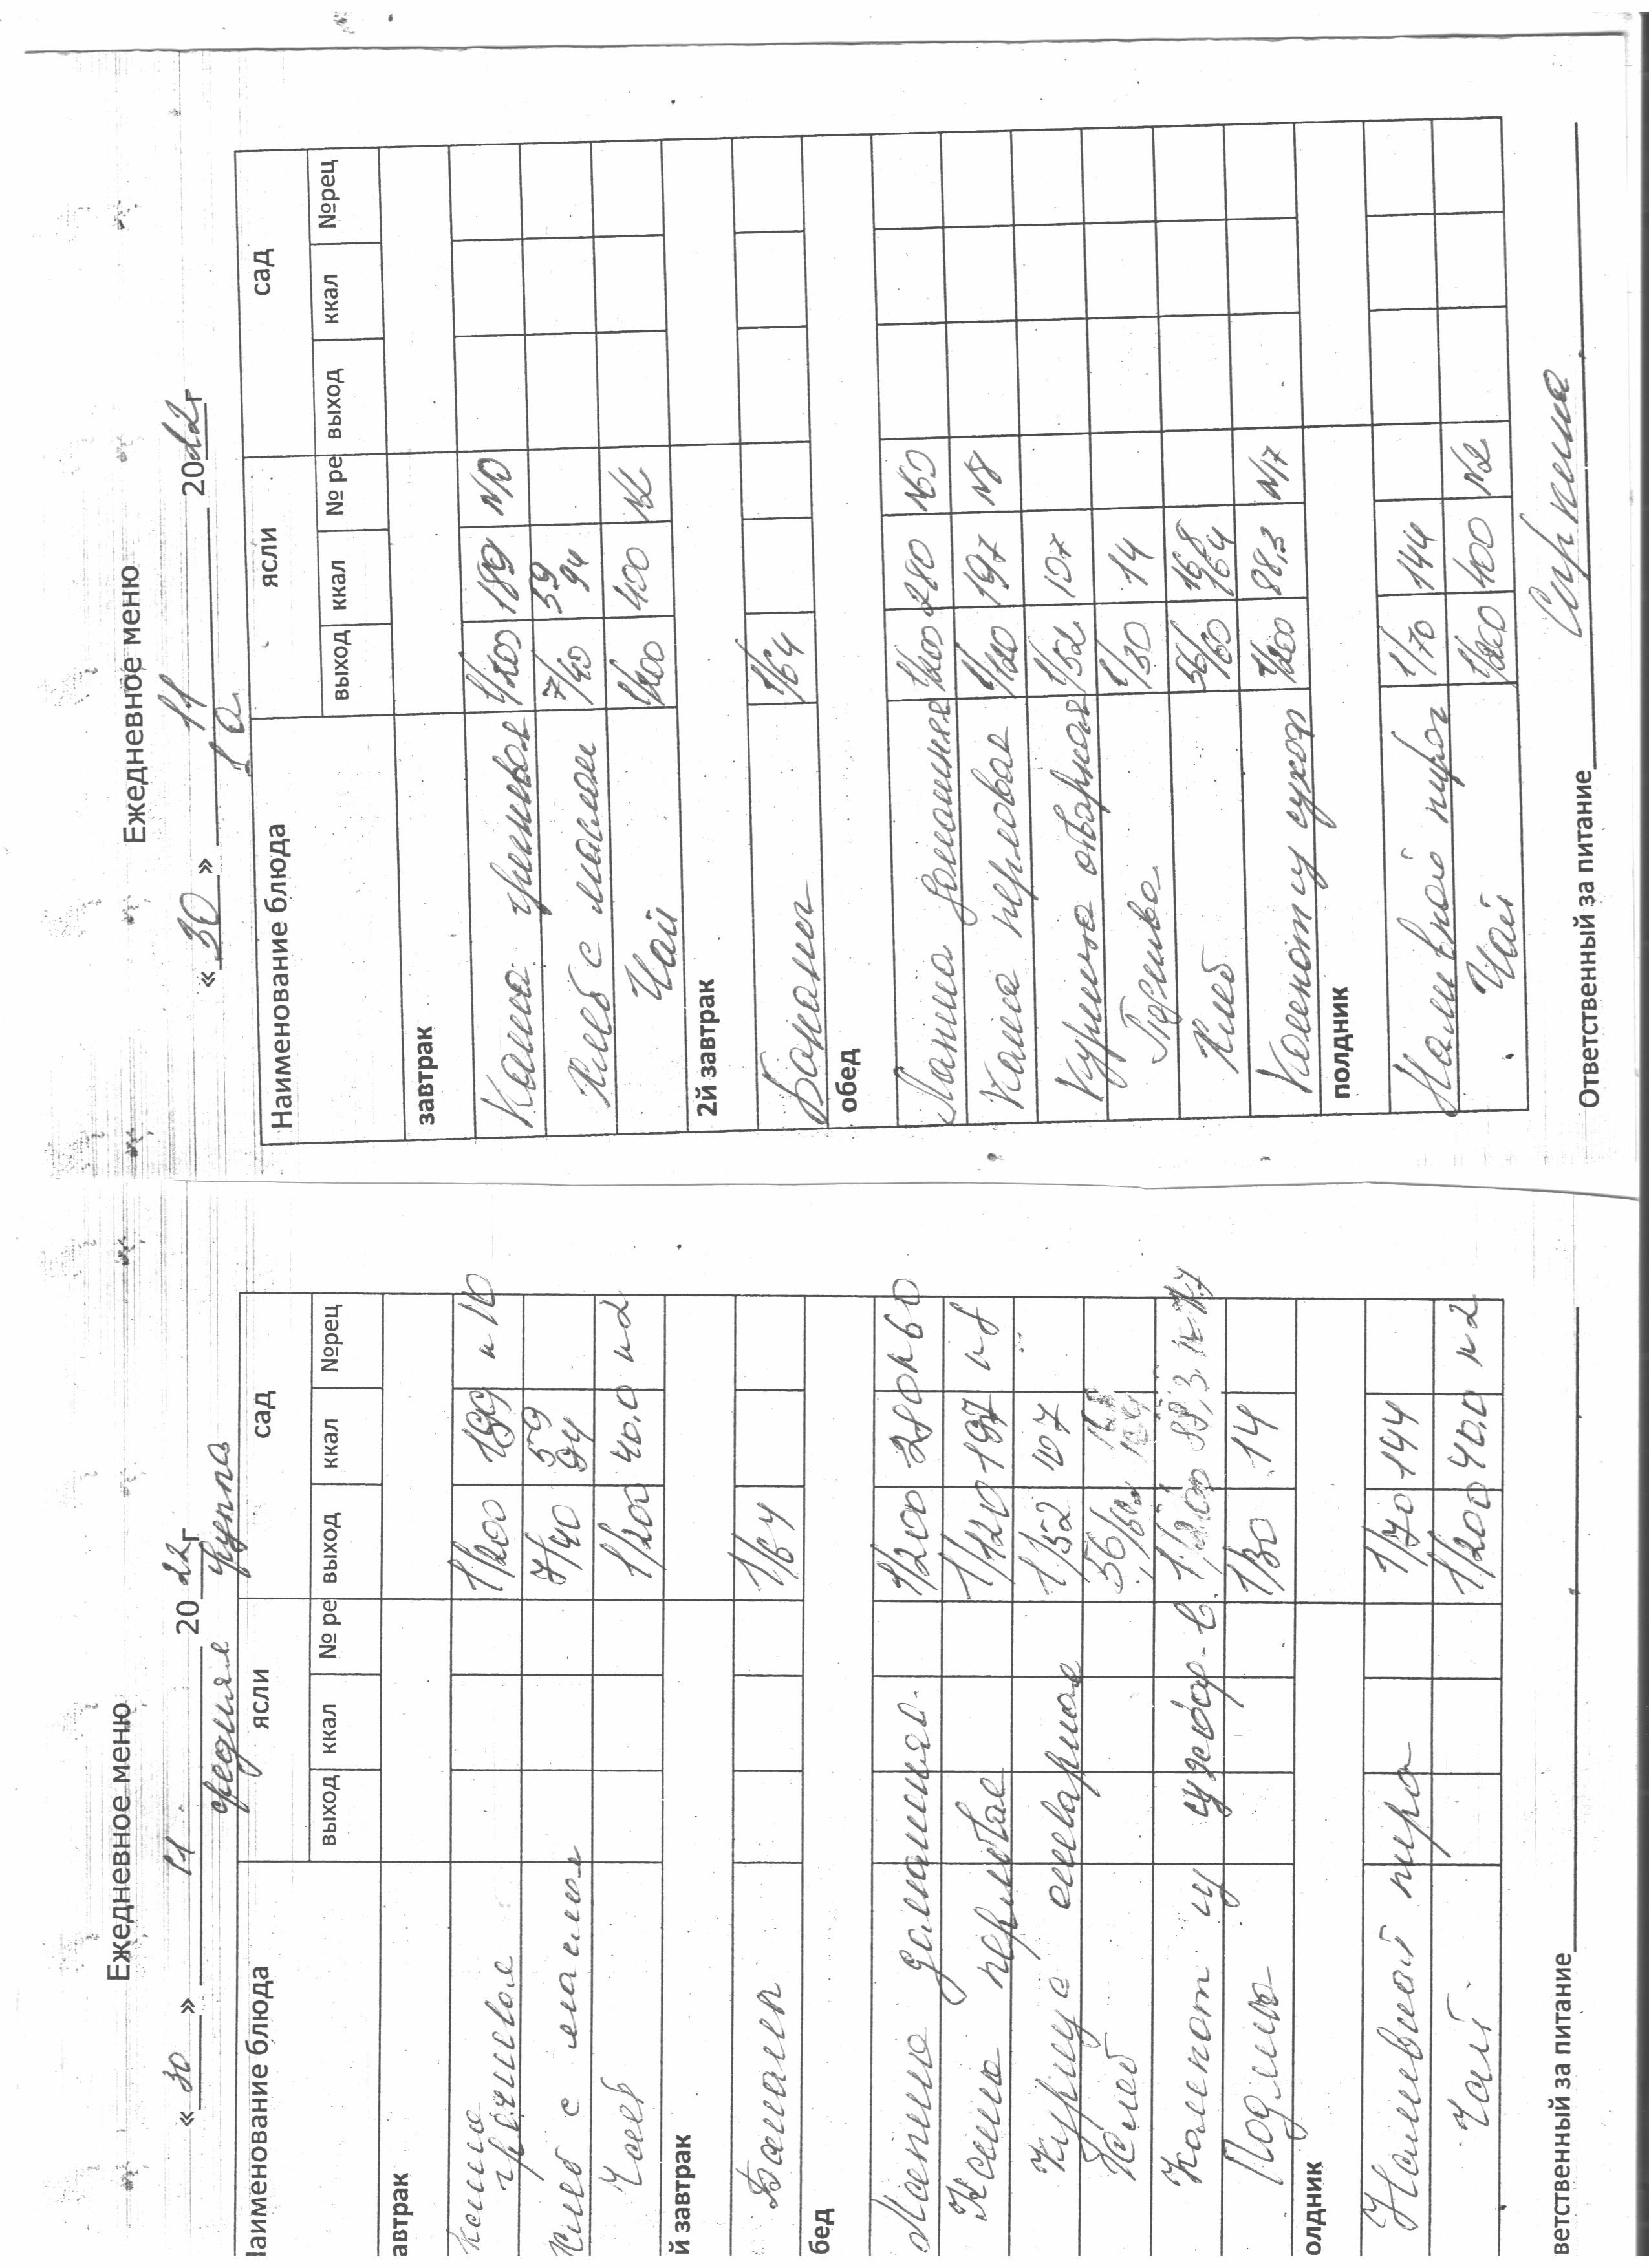 Ежедневное меню
« 30 » 11 2022г
средняя группа
Наименование блюда ясли сад
выход ккал № ре выход ккал №рец
автрак
Каша гречневая 1/200 199 n 10
Хлеб с маслом 7/40 59 94
Чай 1/200 40.0 n 2
й завтрак
Бананы 1/64
бед
Лапша домашняя 1/200 280 n 60
Каша перловая 1/120 197 n 8
Курица отварная 1/52 107
Хлеб 56/
Компот из сухофр-в 1/200 88,3 n 17
Подлива 1/30 14
олдник
Наливной пиро 1/70 144
Чай 1/200 40.0 n 2
ветственный за питание
Ежедневное меню
« 30 » 11 2022г
Наименование блюда ясли сад
выход ккал № ре выход ккал №рец
завтрак
Каша гречневая 1/200 189 N10
Хлеб с маслом 7/40 59 94
Чай 1/200 400 N2
2й завтрак
Бананы 1/64
обед
Лапша домашняя 1/200 280 N60
Каша перловая 1/120 197 N8
Курица отварная 1/52 107
1/30 14
Хлеб 56/60 168 164
Компот из сухофр 1/200 88,3 N17
полдник
Наливной пирог 1/70 144
Чай 1/200 400 N2
Ответственный за питание